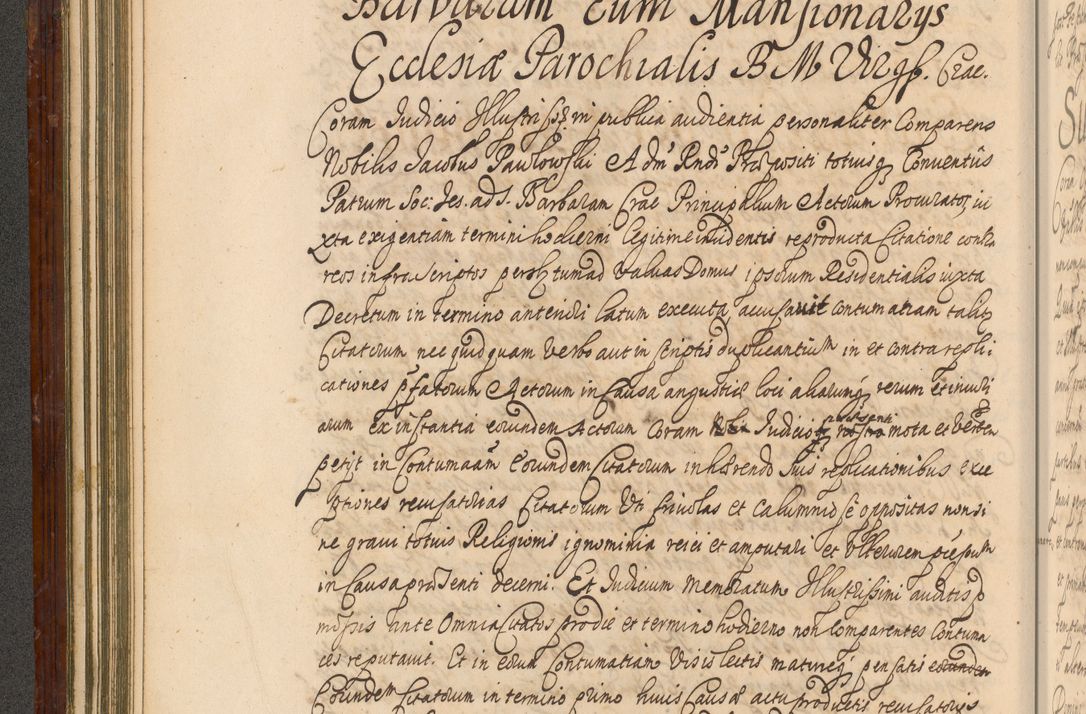 Barbaram cum Mansionarys
Ecclesiæ Parochialis B M Virgſ. Crac.
Coram Judicio Illustriss: in publica audientia personaliter Comparens
Nobilis Jacobus Pawlowski Adm: Rndi Præpositi totiusq Conventûs
Patrum Soc: Jes. ad S. Barbaram Crac Principalium Actorum Procurator, iu
xta exigentiam termini hodierni legitime incidentis reproducta Citatione contra
reos infra Scriptos per tum ad Valvas Domus ipsorum Residentialis iuxta
Decretum in termino anteriori latum executa, accusavit contumatiam talis
Citatorum nec quidquam Verbo aut in scriptis duplicantium in et contra repli:
cationes pſatorum Actorum in Causa angustiæ loci aliarumq rerum et iniuri
arum ex instantia eorundem Actorum Coram Judicio præsenti mota et Verten
petyt in Contumaciam Eorundem Citatorum inhærendo suis replicationibus exce
ptiones recusatorias Citatorum Uti frivolas et Calumniose oppositas non si
ne gravi totius Religionis ignominia reici et amputari et Ulteriorem
in Causa præsenti decerni. Et Judicium memoratum Illustrissimi auditis p
missis ante Omnia Citatos prodie et termino hodierno non Comparentes Contuma
ces reputavit. Et in eorum Contumatiam Visis lectis matureq pensatis eorundem
Eorundem Citatorum in termino primo huius Causæ actu productis recusatorys